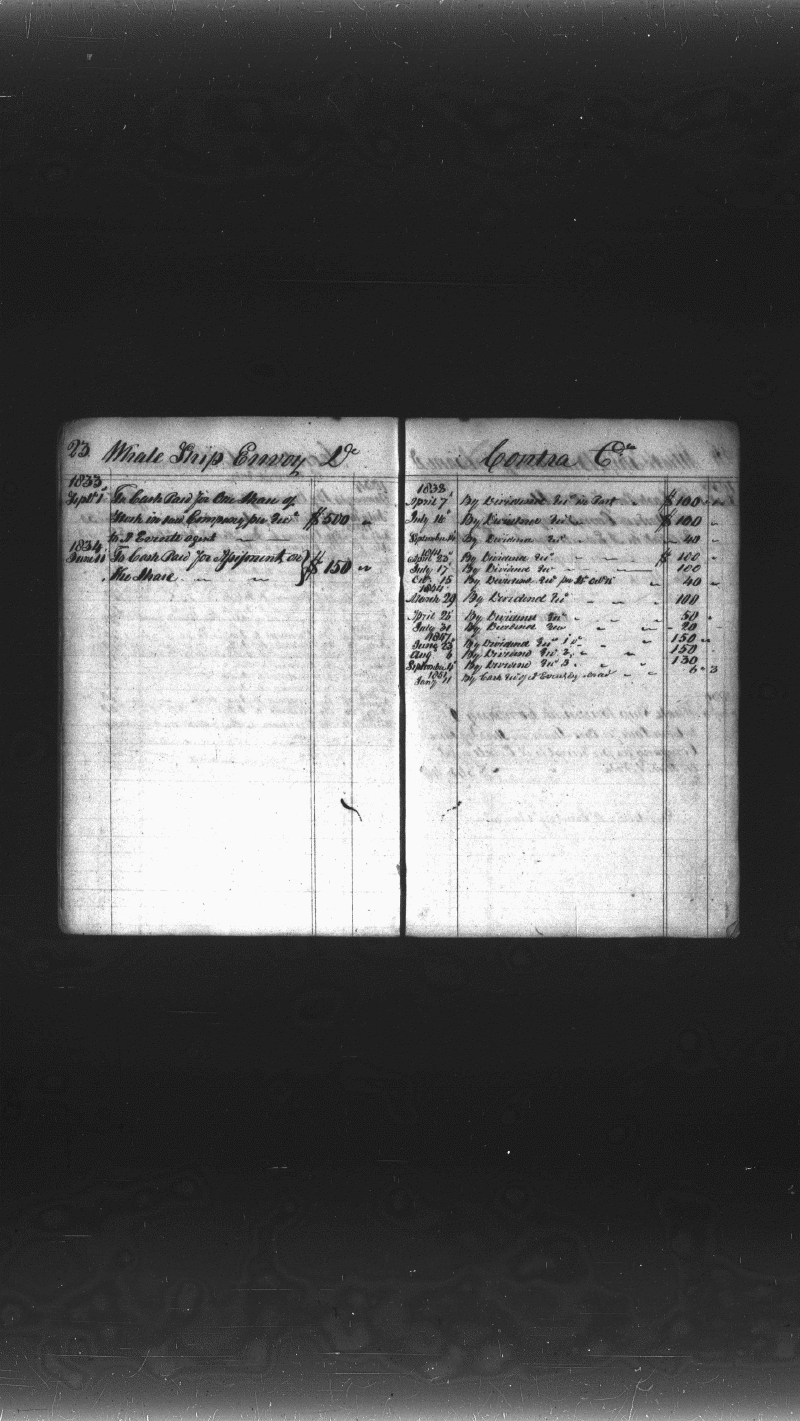 23 Whale Ship Envoy Dr
1833
Sept 1 To Cash Paid for One Share of
Stock in said Company per Rect $ 500
to J Everett agent
1834
June 11 To Cash Paid for Assesment on
the Share $ 150
Contra Cr
1838
April 7 By Dividend Recd in Part $ 100
July 16 By Dividend Recd $ 100
September By Dividend Recd 40
April 23 By Dividend Recd $ 100
July 17 By Dividend Recd 100
Oct 15 By Dividend Recd per 40
1844
March 29 By Dividend Recd 100
April 25 By Dividend Recd 50
July 31 By Dividend Recd 20
1847
June 23 By Dividend Recd 1 150
Aug 6 By Dividend Recd 2 150
September By Dividend Recd 3 130
1851
Jany 11 By Cash Recd of 6 3